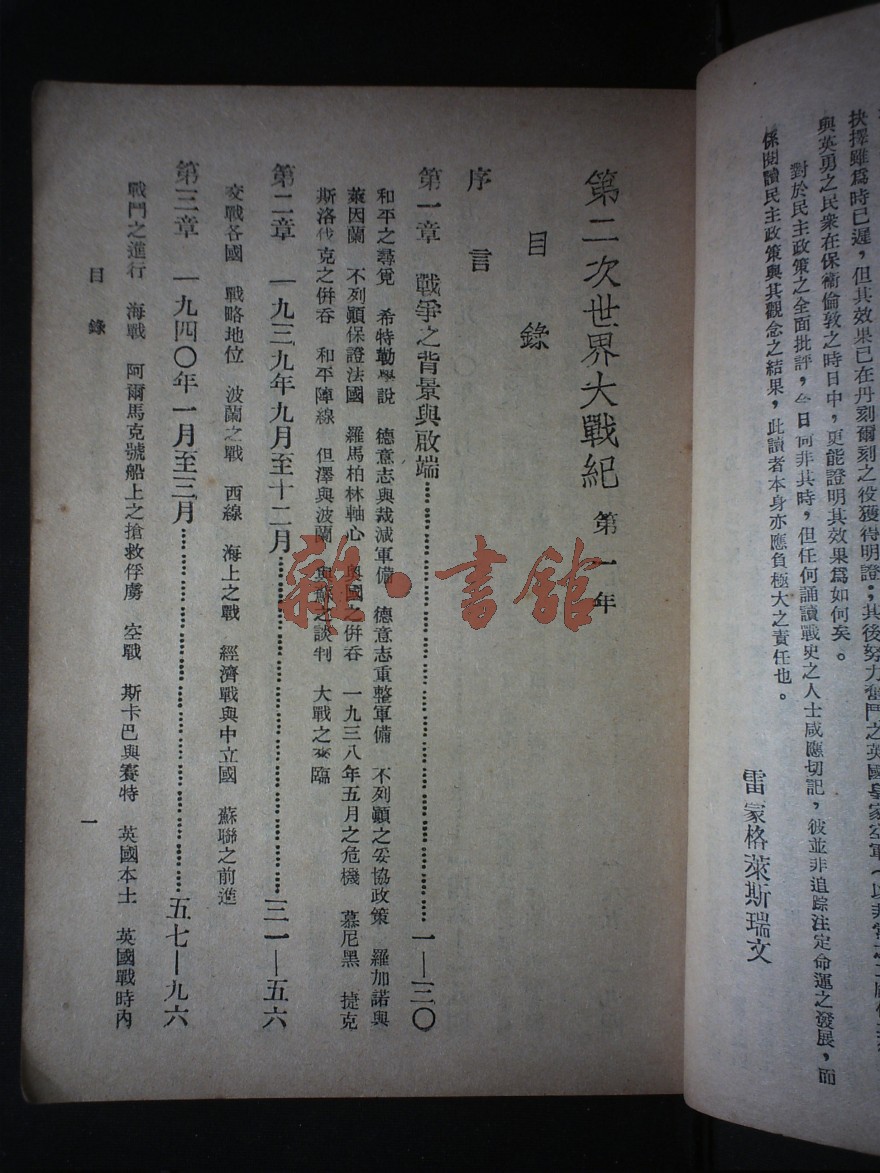 抉擇雖爲時已遲，但其效果已在丹刻爾刻之役獲得明證；其後努力奮鬥之英國皇家空軍
與英勇之民衆在保衞倫敦之時日中，更能證明其效果爲如何矣。
對於民主政策之全面批評，今日尙非其時，但任何誦讀戰史之人士咸應切記，彼並非追踪注定命運之發展，而
係閱讀民主政策與其觀念之結果，此讀者本身亦應負極大之責任也。
雷蒙格萊斯瑞文
第二次世界大戰紀 第一年
目錄
序言
第一章 戰爭之背景與啟端……一—三〇
和平之尋覓 希特勒學說 德意志與裁減軍備 德意志重整軍備 不列顚之妥協政策 羅加諾與
萊因蘭 不列顚保證法國 羅馬柏林軸心 奧國之併吞 一九三八年五月之危機 慕尼黑 捷克
斯洛伐克之併吞 和平陣線 但澤與波蘭 與蘇之談判 大戰之來臨
第二章 一九三九年九月至十二月……三一—五六
交戰各國 戰略地位 波蘭之戰 西線 海上之戰 經濟戰與中立國 蘇聯之前進
第三章 一九四〇年一月至三月……五七—九六
戰鬥之進行 海戰 阿爾馬克號船上之搶救俘虜 空戰 斯卡巴與賽特 英國本土 英國戰時內
目錄
一
雜·書館